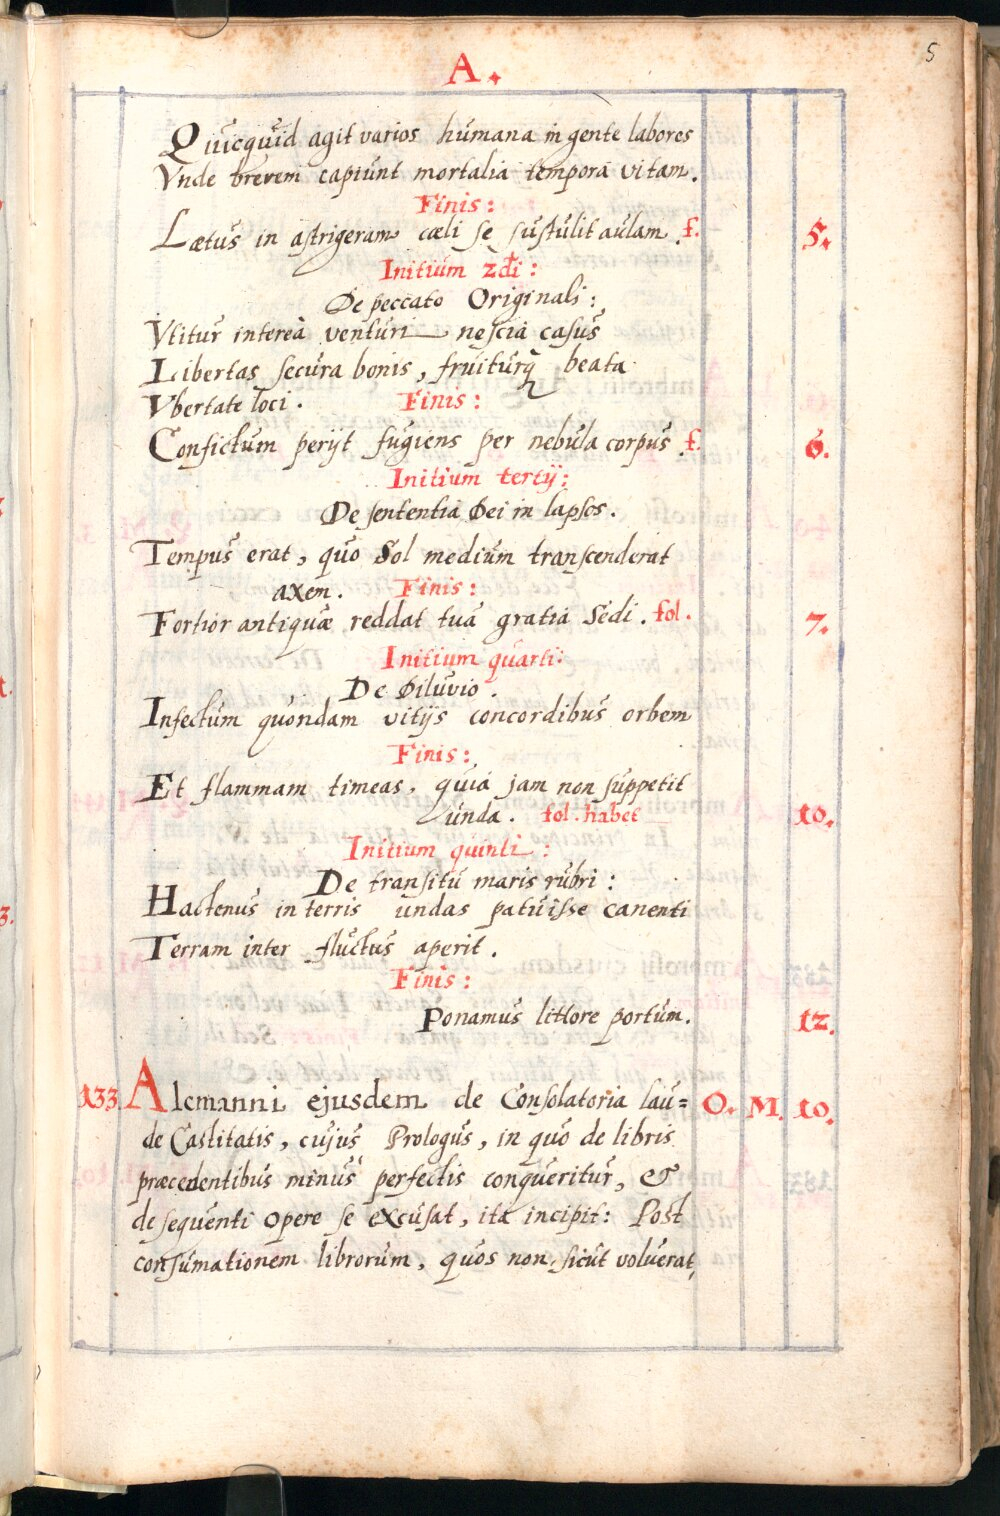 5
A.
Quicquid agit varios humana in gente labores
Vnde brevem capiunt mortalia tempora vitam.
Finis:
Lætus in astrigeram cæli se sustulit aulam f. 5.
Initium 2di:
De peccato Originali:
Vtitur intereà venturi nescia casus
Libertas secura bonis, fruiturq beata
Vbertate loci. Finis:
Confictum perijt fugiens per nebula corpus f. 6.
Initium tertij:
De sententia Dei in lapsos.
Tempus erat, quo Sol medium transcenderat
axem. Finis:
Fortior antiquæ reddat tua gratia Sedi. fol. 7.
Initium quarti:
De Diluvio.
Infectum quondam vitijs concordibus orbem
Finis:
Et flammam timeas, quia jam non suppetit
unda. fol. habet 10.
Initium quinti:
De transitu maris rubri:
Hactenus in terris undas patuisse canenti
Terram inter fluctus aperit.
Finis:
Ponamus littore portum. 12.
133. Alemanni ejusdem de Consolatoria lau= O. M. 10.
de Castitatis, cujus Prologus, in quo de libris
præcedentibus minus perfectis conqueritur, &
de sequenti opere se excusat, ita incipit: Post
consumationem librorum, quos non, sicut voluerat,